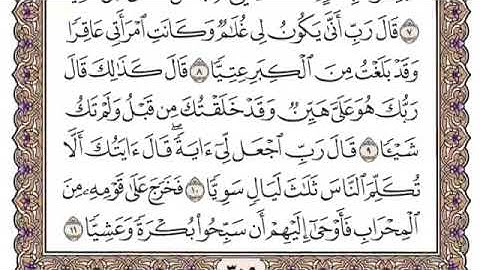 ﴿٧﴾ قَالَ رَبِّ أَنَّىٰ يَكُونُ لِي غُلَٰمٞ وَكَانَتِ ٱمۡرَأَتِي عَاقِرٗا
وَقَدۡ بَلَغۡتُ مِنَ ٱلۡكِبَرِ عِتِيّٗا ﴿٨﴾ قَالَ كَذَٰلِكَ قَالَ
رَبُّكَ هُوَ عَلَيَّ هَيِّنٞ وَقَدۡ خَلَقۡتُكَ مِن قَبۡلُ وَلَمۡ تَكُ
شَيۡـٔٗا ﴿٩﴾ قَالَ رَبِّ ٱجۡعَل لِّيٓ ءَايَةٗۖ قَالَ ءَايَتُكَ أَلَّا
تُكَلِّمَ ٱلنَّاسَ ثَلَٰثَ لَيَالٖ سَوِيّٗا ﴿١٠﴾ فَخَرَجَ عَلَىٰ قَوۡمِهِۦ مِنَ
ٱلۡمِحۡرَابِ فَأَوۡحَىٰٓ إِلَيۡهِمۡ أَن سَبِّحُواْ بُكۡرَةٗ وَعَشِيّٗا ﴿١١﴾